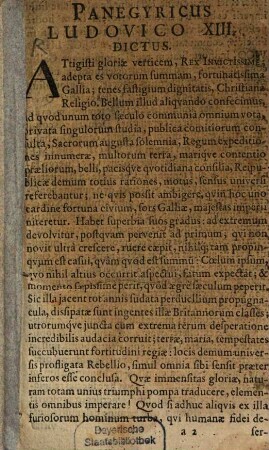 PANEGYRICUS
LUDOVICO XIII.
DICTUS.
ATtigisti gloriæ verticem, REX INVICTISSIME;
adepta es votorum summam, fortunatissima
Gallia; tenes fastigium dignitatis, Christiana
Religio. Bellum illud aliquando confecimus,
ad quod unum toto sæculo communia omnium vota,
privata singulorum studia, publica comitiorum con-
sulta, Sacrorum augusta solemnia, Regum expeditio-
nes innumeræ, multorum terra, marique contentio
præliorum, belli, pacisque quotidiana consilia, Reipu-
blicæ demum totius rationes, motus, sensus universi
referebantur; ne quis possit ambigere, quin hoc uno
cardine fortuna civium, sors Galliæ, majestas imperii
niteretur. Habet superbia suos gradus: ad extremum
devolvitur, postquam pervenit ad primum; qui non
novit ultra crescere, ruere cæpit, nihilque tam propin-
quum est casui, quàm quod est summũ: Cœlum ipsum,
quo nihil altius occurrit aspectui, fatum expectat; &
momento sæpissime perit, quod ægre sæculum peperit.
Sic illa jacent tot annis sudata perduellium propugna-
cula, dissipatæ sunt ingentes illæ Britannorum classes;
utrorumque juncta cum extrema rerum desperatione
incredibilis audacia corruit; terræ, maria, tempestates
succubuerunt fortitudini regiæ: locis demum univer-
sis profligata Rebellio, simul omnia sibi sensit præter
inferos esse conclusa. Quæ immensitas gloriæ, natu-
ram totam unius triumphi pompa traducere, elemen-
tis omnibus imperare! Quod si adhuc aliquis ex illa
furiosorum hominum turba, qui humanæ fidei de-
a 2 ser-
Bayerische
Staatsbibliothek